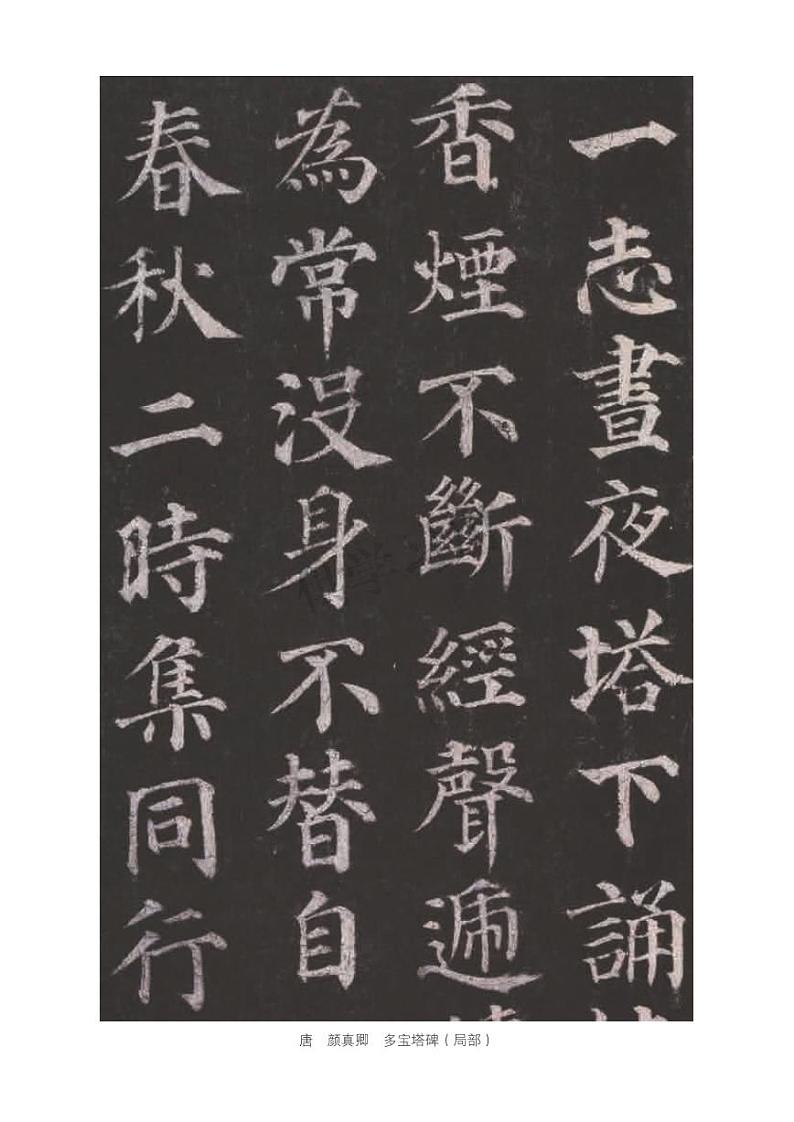 一志晝夜塔下誦
香煙不斷經聲遞
為常没身不替自
春秋二時集同行
唐 颜真卿 多宝塔碑（局部）